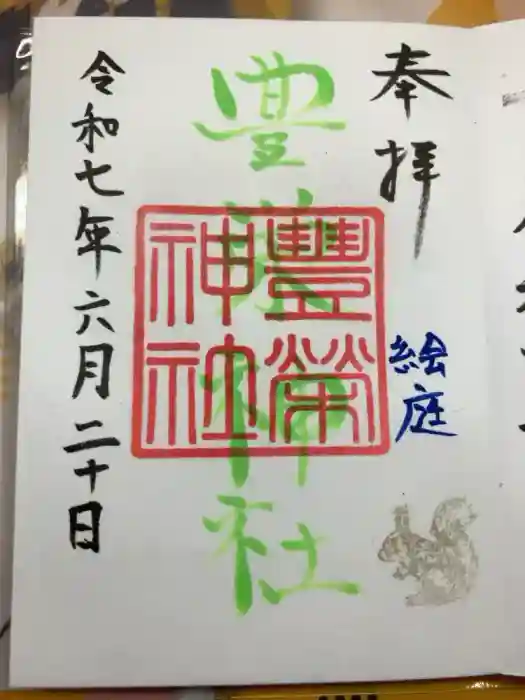 奉拝
絵庭
豊栄神社
豐榮
神社
令和七年六月二十日